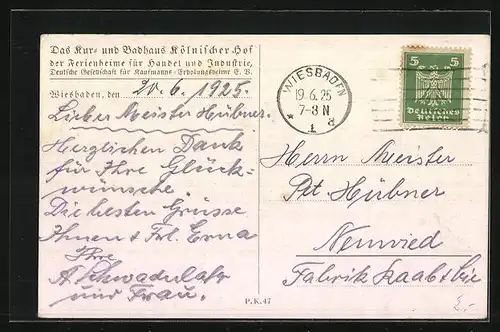 Das Kur- und Badhaus Kölnischer Hof
der Ferienheime für Handel und Industrie,
Deutsche Gesellschaft für Kaufmanns-Erholungsheime E. V.
Wiesbaden, den 20.6.1925.
Lieber Meister Hübner.
Herzlichen Dank
für Ihre Glück=
wünsche.
Die besten Grüsse
Ihnen & Frl. Erna
Ihre
und Frau.
WIESBADEN
19.6.25
7-8 N
* 1
5 5
Deutsches
Reich
Herrn Meister
Pet. Hübner
Neuwied
Fabrik Raab &
P.K.47